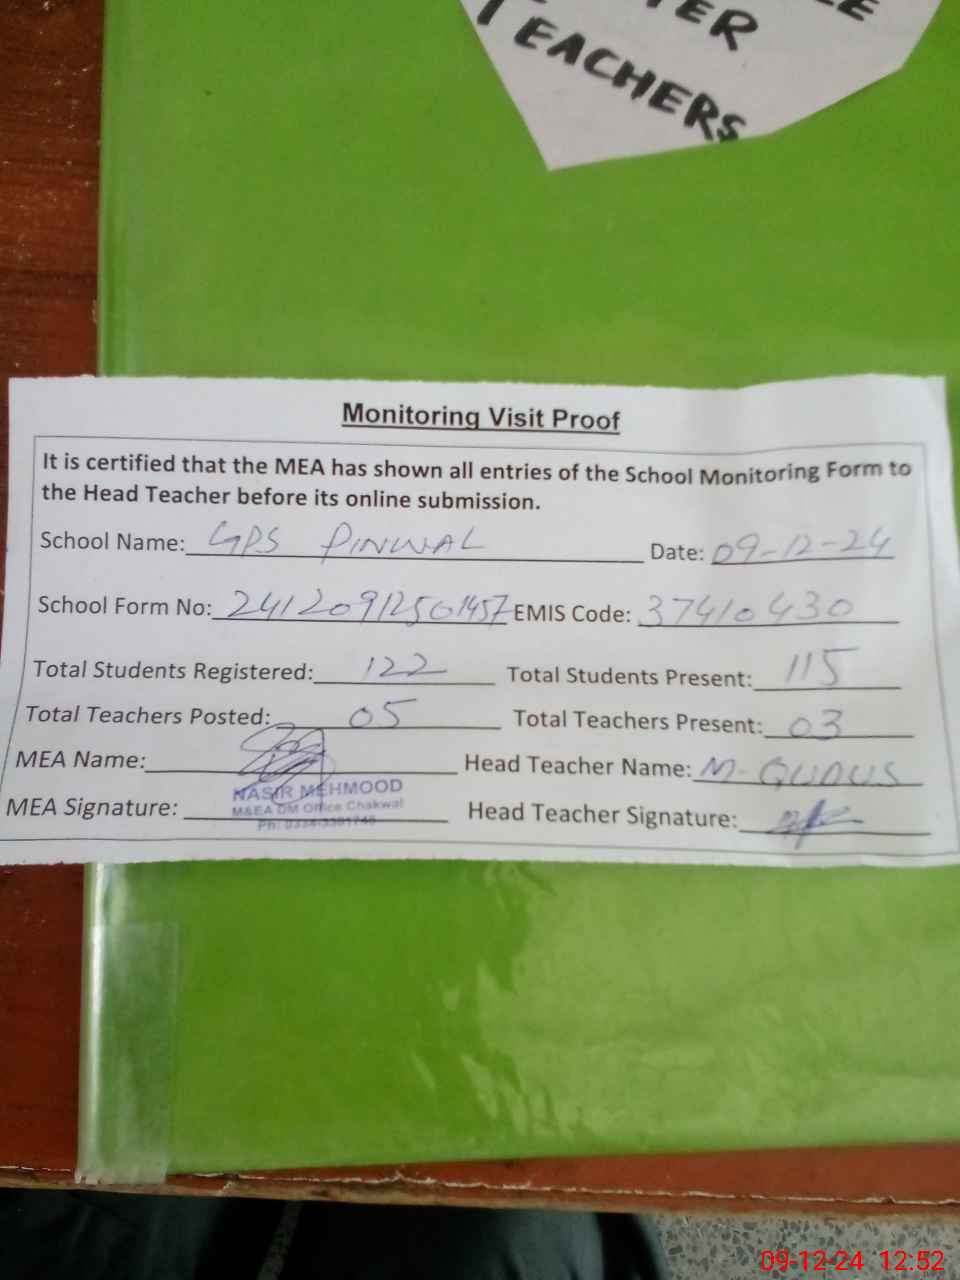 TER
TEACHERS
Monitoring Visit Proof
It is certified that the MEA has shown all entries of the School Monitoring Form to
the Head Teacher before its online submission.
School Name: GPS PINWAL Date: 09-12-24
School Form No: 24120912501457 EMIS Code: 37410430
Total Students Registered: 122 Total Students Present: 115
Total Teachers Posted: 05 Total Teachers Present: 03
MEA Name: Head Teacher Name: M. QUDUS
NASIR MEHMOOD
M&EA DM Office Chakwal
MEA Signature: Head Teacher Signature:
Ph:
09-12-24 12:52